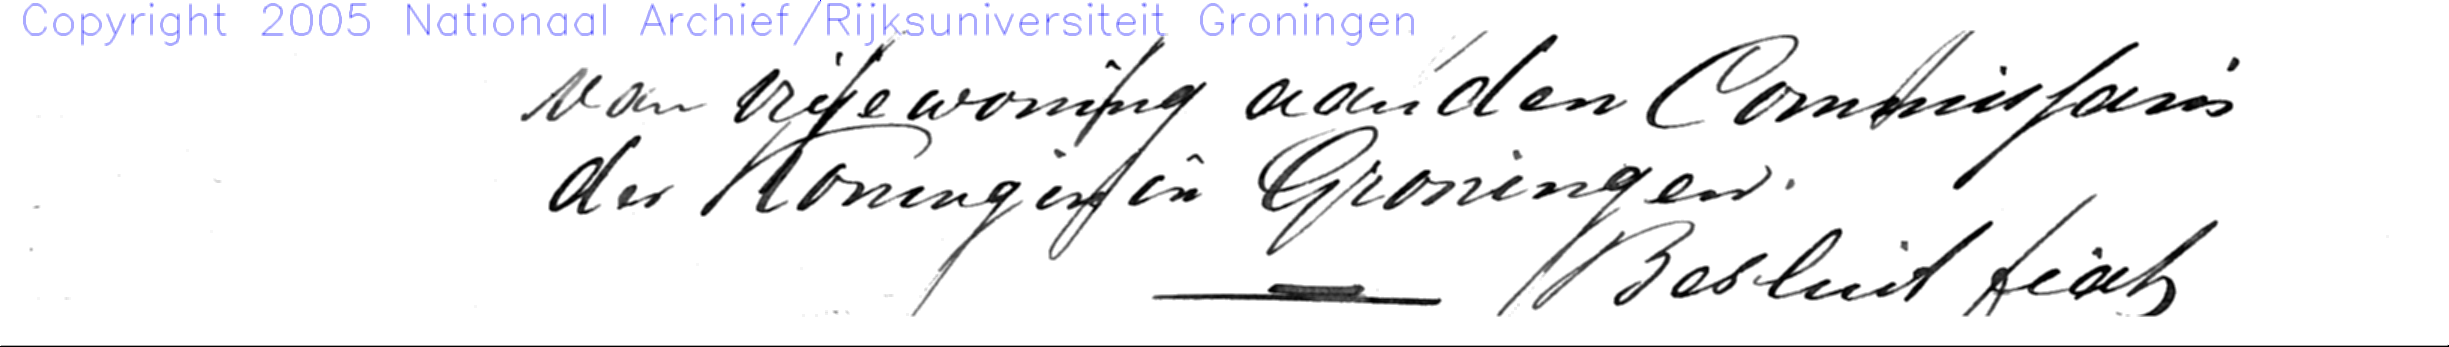 Copyright 2005 Nationaal Archief/Rijksuniversiteit Groningen
van vrije woning aan den Commissaris
der Koningin in Groningen.
Besluit fiat